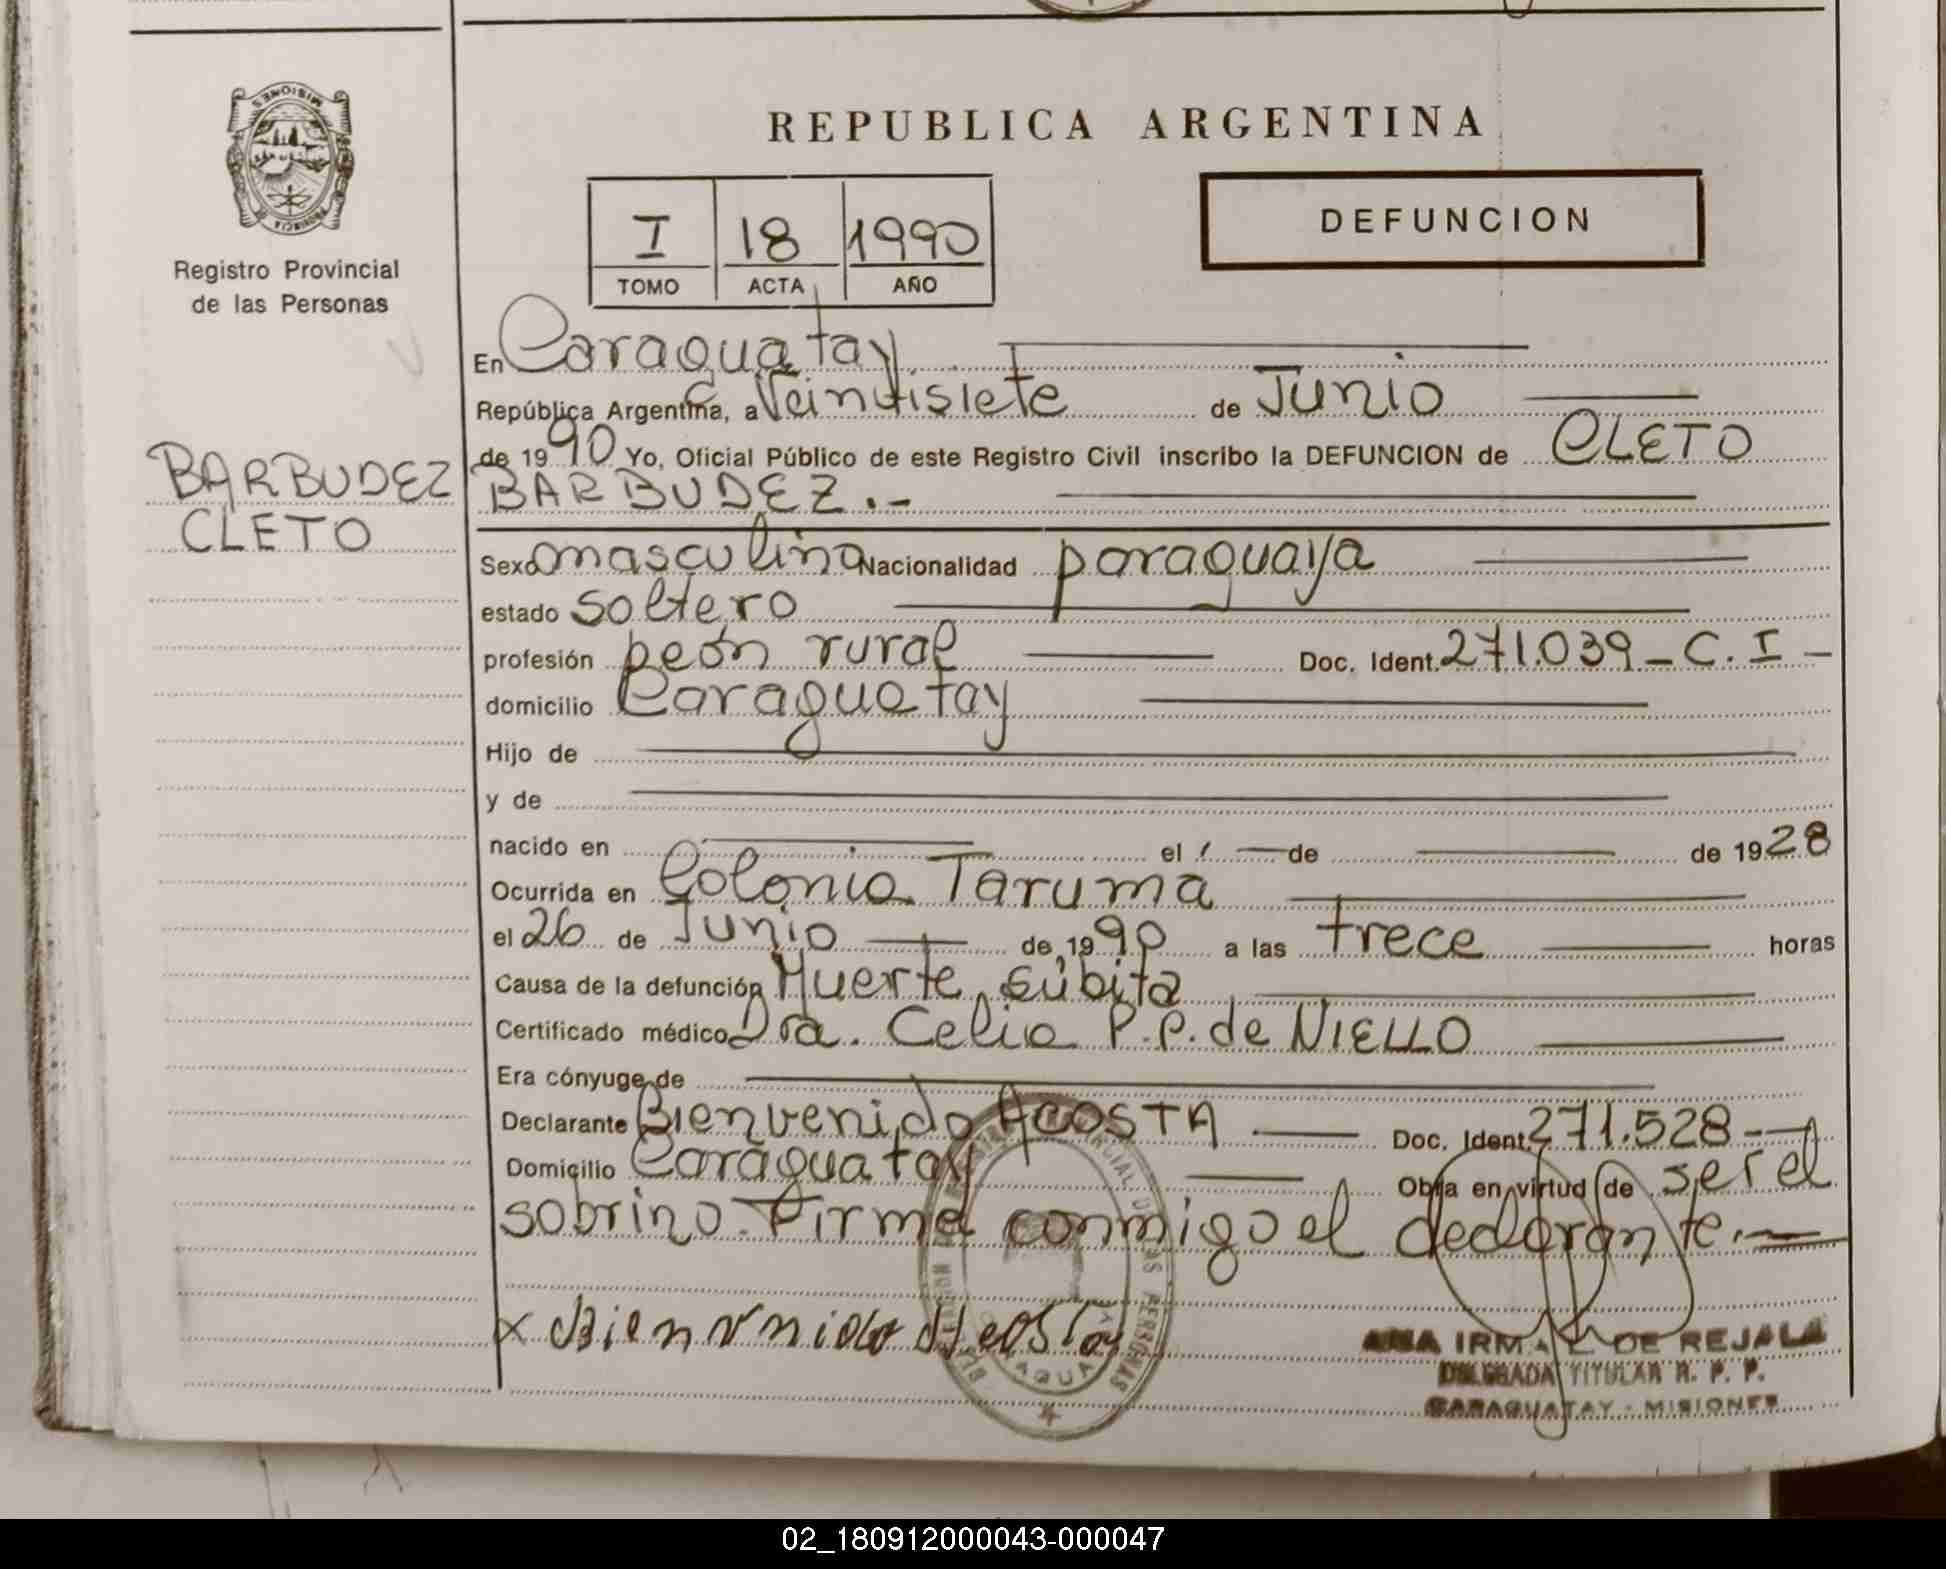 MISIONES
PROVINCIA DE
Registro Provincial
de las Personas
BARBUDEZ
CLETO
REPUBLICA ARGENTINA
I 18 1990
TOMO ACTA AÑO
DEFUNCION
En Caraguatay
República Argentina, a Veintisiete de Junio
de 1990 Yo, Oficial Público de este Registro Civil inscribo la DEFUNCION de CLETO
BARBUDEZ.-
Sexo masculina Nacionalidad paraguaya
estado soltero
profesión peón rural Doc. Ident. 271.039 - C.I -
domicilio Caraguatay
Hijo de
y de
nacido en el de de 1928
Ocurrida en Colonia Taruma
el 26 de Junio de 1990 a las trece horas
Causa de la defunción Muerte súbita
Certificado médico Dra. Celia P.P. de NIELLO
Era cónyuge de
Declarante Bienvenido ACOSTA Doc. Ident. 271.528
Domicilio Caraguatay Obra en virtud de ser el
sobrino. Firma conmigo el declarante.
x Bienvnido Acosta
ANA IRMA DE REJALA
DELEGADA TITULAR R. P. P.
CARAGUATAY - MISIONES
02_180912000043-000047